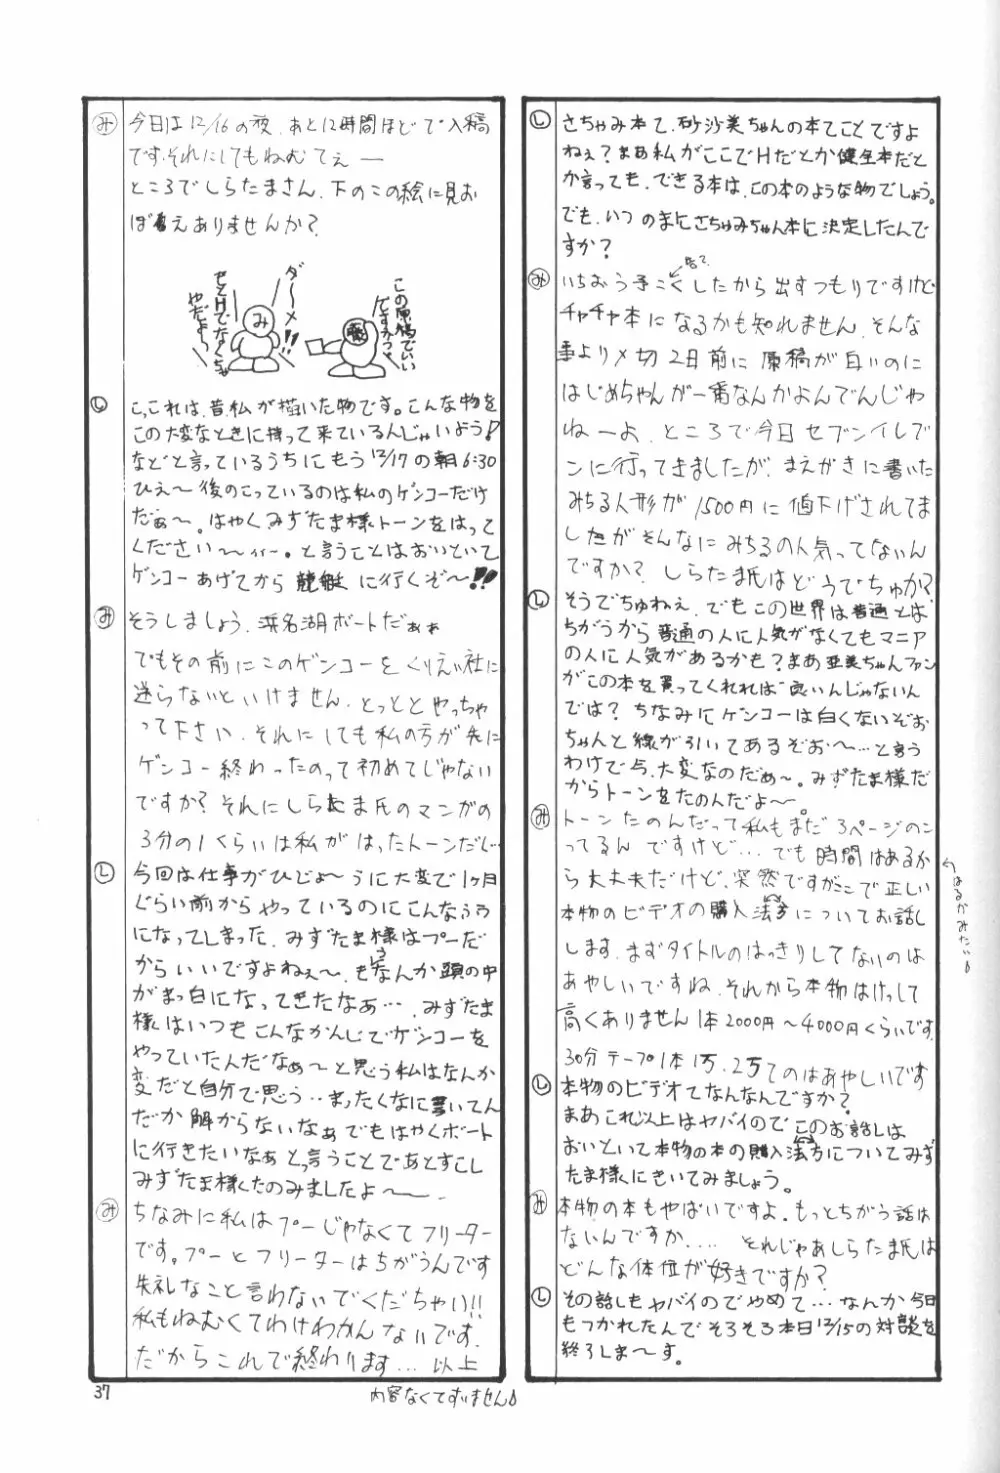 し さちゃみ本て、砂沙美ちゃんの本てことですよ
ねぇ？まあ私がここでHだとか健全本だと
か言っても、できる本は、この本のような物でしょう。
でも、いつのまにさちゅみちゃん本に決定したんで
すか？
み いちおう予こくしたから出すつもりですけど
チャチャ本になるかも知れません、そんな
事より〆切2日前に原稿が白いのに
はじめちゃんが一番なんかよんでんじゃ
ねーよ、ところで今日セブンイレブ
ンに行ってきましたが、まえがきに書いた
みちる人形が1500円に値下げされてま
したがそんなにみちるの人気ってないん
ですか？しらたま氏はどうでちゅか？
し そうでちゅねぇ、でもこの世界は普通とは
ちがうから普通の人に人気がなくてもマニア
の人に人気があるかも？まあ亜美ちゃんファン
がこの本を買ってくれれば良いんじゃないん
では？ちなみにゲンコーは白くないぞお
ちゃんと線が引いてあるぞお〜…と言う
わけで今、大変なのだぁ〜。みずたま様だ
からトーンをたのんだよ〜。
み トーンたのんだって私もまだ3ページのこ
ってるんですけど…でも時間はあるか
ら大丈夫だけど、突然ですがここで正しい
本物のビデオの購入法方についてお話し
します。まずタイトルのはっきりしてないのは
あやしいですね、それから本物はけっして
高くありません1本2000円〜4000円くらいです
30分テープ1本1万、2万てのはあやしいです
し 本物のビデオてなんなんですか？
まあこれ以上はヤバイのでこのお話しは
おいといて本物の本の購入法方についてみず
たま様にきいてみましょう。
み 本物の本もやばいですよ、もっとちがう話は
ないんですか…. それじゃあしらたま氏は
どんな体位が好きですか？
し その話しもヤバイのでやめて…なんか今日
もつかれたんでそろそろ本日12/15の対談を
終了しま〜す。
み 今日は12/16の夜、あと12時間ほどで入稿
です、それにしてもねむてぇ—
ところでしらたまさん、下のこの絵に見お
ぼえありませんか？
この原稿でいい
ですかっ
み
ダ〜メ!!
もとHでなくちゃ
やだよっ
し こ、これは、昔、私が描いた物です。こんな物を
この大変なときに持って来ている人じゃいよう!
などと言っているうちにもう12/17の朝6:30
ひえ〜後のこっているのは私のゲンコーだけ
だぁ〜。はやくみずたま様トーンをはって
ください〜。と言うことはおいといて
ゲンコーあげてから競艇に行くぞ〜!!
み そうしましょう、浜名湖ボートだぁぁ
でもその前にこのゲンコーをくりえい社に
送らないといけません、とっととやっちゃ
って下さい、それにしても私の方が先に
ゲンコー終わったのって初めてじゃない
ですか？それにしらたま氏のマンガの
3分の1くらいは私がはったトーンだし
し 今回は仕事がひじょ〜うに大変で1ヶ月
ぐらい前からやっているのにこんなふう
になってしまった、みずたま様はプーだ
からいいですよねぇ〜、もうなんか頭の中
がまっ白になってきたなあ…、みずたま
様はいつもこんなかんじでゲンコーを
やっていたんだなぁ〜と思う私はなんか
変だと自分で思う…まったくなに書いてん
だか解からないなぁでもはやくボート
に行きたいなぁと言うことであとすこし
みずたま様くたのみましたよ〜
み ちなみに私はプーじゃなくてフリーター
です。プーとフリーターはちがうんです
失礼なこと言わないでくだちゃい!!
私もねむくてわけわかんないです、
だからこれで終わります…以上
37
内容なくてすいません